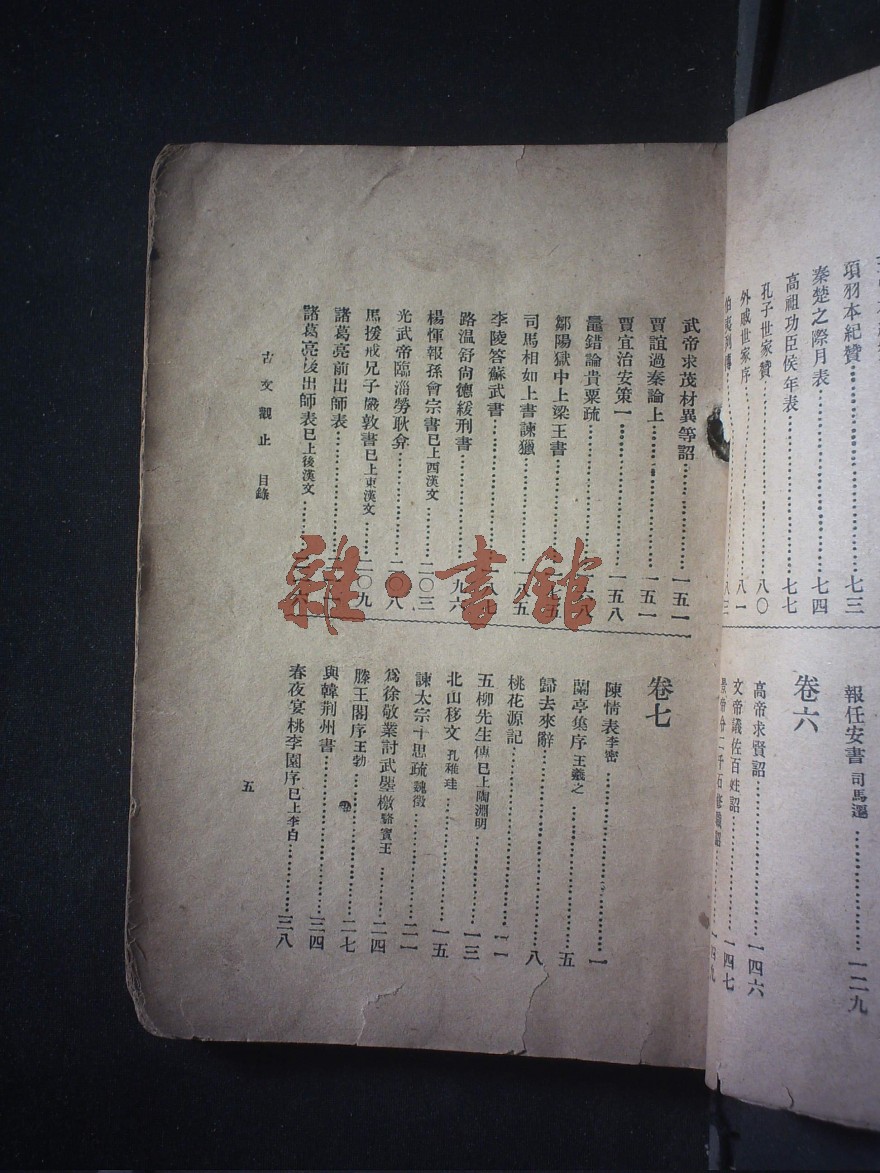 項羽本紀贊……七三
秦楚之際月表……七四
高祖功臣侯年表……七七
孔子世家贊……八〇
外戚世家序……八一
伯夷列傳……八三
報任安書 司馬遷……一二九
卷六
高帝求賢詔……一四六
文帝議佐百姓詔……一四七
武帝求茂材異等詔……一五一
賈誼過秦論上……一五一
賈誼治安策一……一五八
鼂錯論貴粟疏……六八
鄒陽獄中上梁王書
司馬相如上書諫獵……八五
李陵答蘇武書……一八七
路温舒尚德緩刑書……九六
楊惲報孫會宗書已上西漢文……二〇三
光武帝臨淄勞耿弇……二〇八
馬援戒兄子嚴敦書已上東漢文……二〇九
諸葛亮前出師表……
諸葛亮後出師表已上後漢文……
卷七
陳情表李密……一
蘭亭集序王羲之……五
歸去來辭……八
桃花源記……一一
五柳先生傳已上陶淵明……一三
北山移文孔稚珪……一五
諫太宗十思疏魏徵……二一
爲徐敬業討武曌檄駱賓王……二四
滕王閣序王勃……二七
與韓荆州書……三四
春夜宴桃李園序已上李白……三八
古文觀止 目錄
五
雜·書館